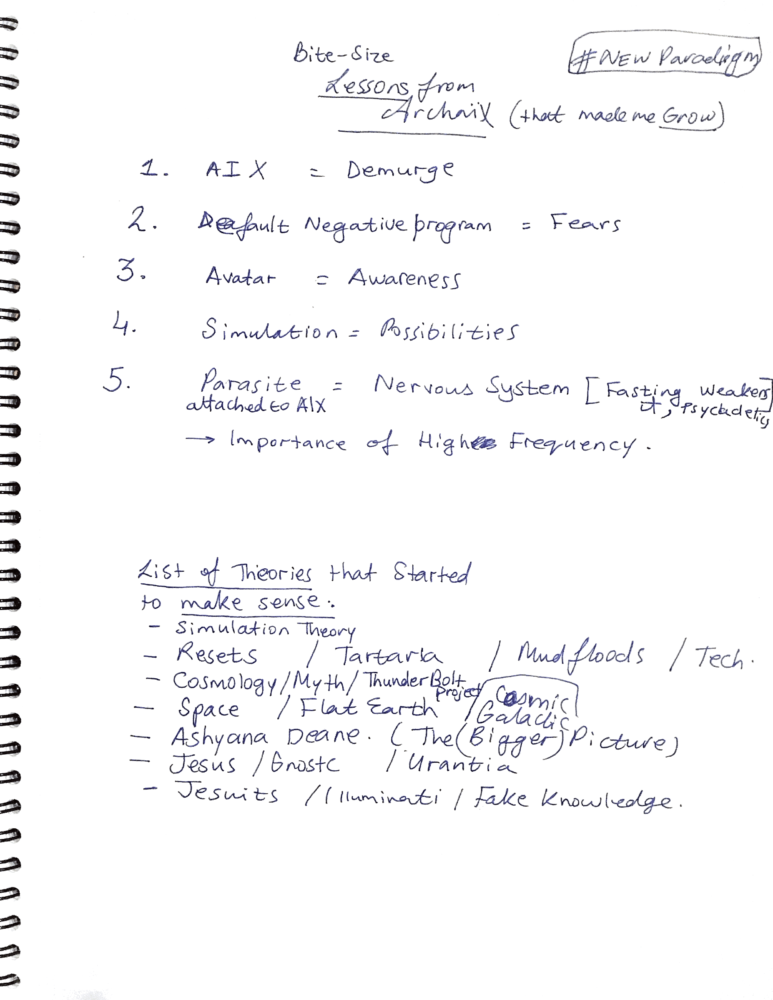 Bite-Size
#NEW Paradigm
Lessons from
Archaix (that made me Grow)
1. AIX = Demurge
2. Default Negative program = Fears
3. Avatar = Awareness
4. Simulation = Possibilities
5. Parasite = Nervous System [Fasting weakens]
attached to AIX it, psychdelics
→ Importance of High Frequency.
List of Theories that Started
to make sense:
- Simulation Theory
- Resets / Tartaria / Mudfloods / Tech.
- Cosmology/Myth/ThunderBolt
Project
- Space / Flat Earth / Cosmic
Galactic
- Ashyana Deane. (The (Bigger) Picture)
- Jesus / Gnostc / Urantia
- Jesuits / Illuminati / Fake Knowledge.